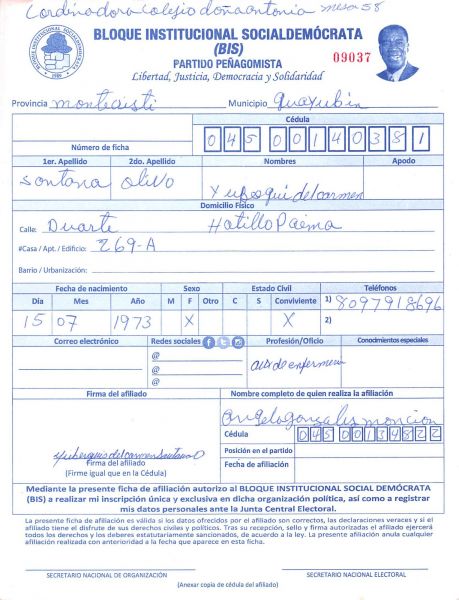 Cordinadora Colegio doña antonia mesa 58
BLOQUE INSTITUCIONAL SOCIALDEMÓCRATA
(BIS)
PARTIDO PEÑAGOMISTA
09037
Libertad, Justicia, Democracia y Solidaridad
Provincia montecisti Municipio Guayubin
Cédula
Número de ficha 045 0014038 1
1er. Apellido 2do. Apellido Nombres Apodo
Santana Olivo del carmen
Domicilio Físico
Calle: Duarte Hatillo Palma
#Casa / Apt. / Edificio: 269-A
Barrio / Urbanización:
Fecha de nacimiento Sexo Estado Civil Teléfonos
Día Mes Año M F Otro C S Conviviente 1) 8097918696
15 07 1973 X X 2)
Correo electrónico Redes sociales Profesión/Oficio Conocimientos especiales
@
@
@
aux de enfermeria
Firma del afiliado Nombre completo de quien realiza la afiliación
angela gonzales moncion
Cédula 045 0013482 2
Posición en el partido
Firma del afiliado
(Firme igual que en la Cédula)
Fecha de afiliación
Mediante la presente ficha de afiliación autorizo al BLOQUE INSTITUCIONAL SOCIAL DEMÓCRATA
(BIS) a realizar mi inscripción única y exclusiva en dicha organización política, así como a registrar
mis datos personales ante la Junta Central Electoral.
La presente ficha de afiliación es válida si los datos ofrecidos por el afiliado son correctos, las declaraciones veraces y si el
afiliado tiene el disfrute de sus derechos civiles y políticos. Tras su recepción, sello y firma autorizadas el afiliado ejercerá
todos los derechos y los deberes estatutariamente sancionados, de acuerdo a la ley. La presente afiliación anula cualquier
afiliación realizada con anterioridad a la fecha que aparece en esta ficha.
SECRETARIO NACIONAL DE ORGANIZACIÓN SECRETARIO NACIONAL ELECTORAL
(Anexar copia de cédula del afiliado)